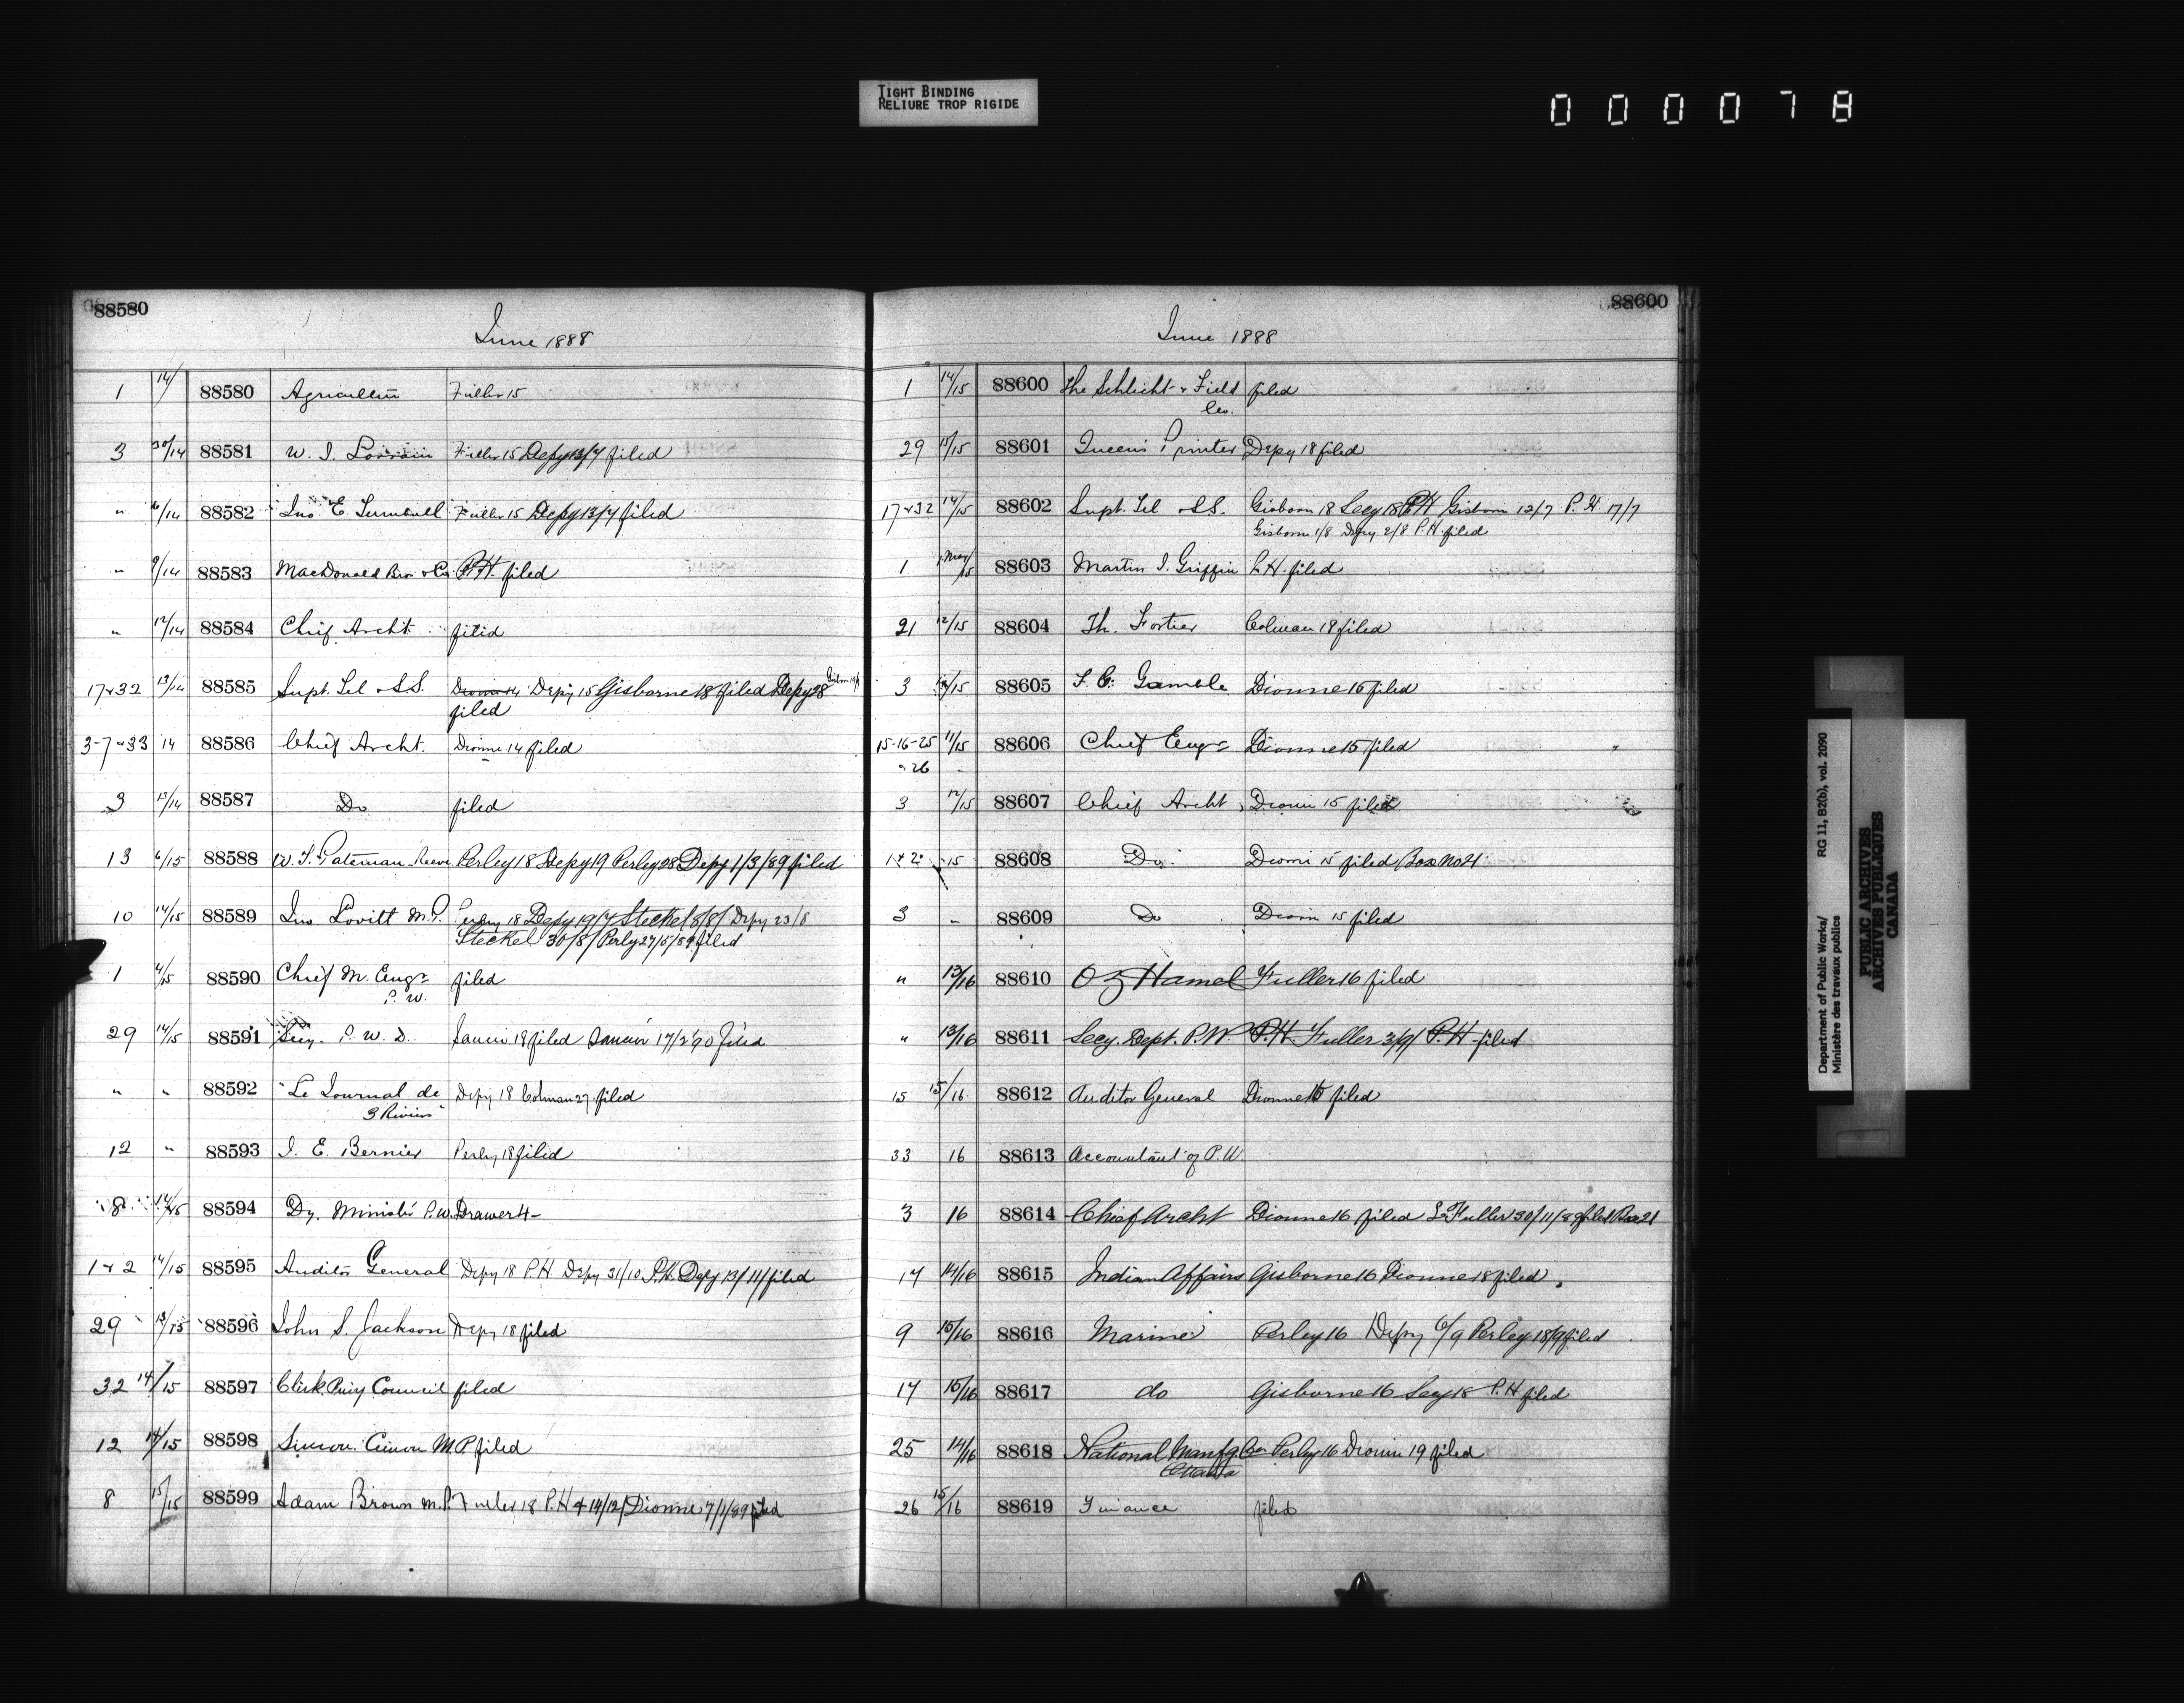 TIGHT BINDING
RELIURE TROP RIGIDE
0 0 0 0 7 8
88580
June 1888
1 14/ 88580 Agriculture Fuller 15
3 30/14 88581 W. J. Lorrain Fuller 15 Depy 13/7 filed
" 6/14 88582 Jno. E. Turnbull Fuller 15 Depy 13/7 filed
" 9/14 88583 MacDonald Bro & Co P.H. filed
" 12/14 88584 Chief Archt. filed
17&32 13/14 88585 Supt. Tel & S.S. Dionne 14 Depy 15 Gisborne 18 filed Depy 28
filed
3-7-33 14 88586 Chief Archt. Dionne 14 filed
3 13/14 88587 Do filed
13 6/15 88588 W. T. Pateman Reeve Perley 18 Depy 19 Perley 28 Depy 1/3/89 filed
10 14/15 88589 Jno Lovitt M.P. Perley 18 Depy 19/7 Steckel 8/8/ Depy 23/8
Steckel 30/8/ Perly 27/5/89 filed
1 4/15 88590 Chief M. Engr filed
P. W.
29 14/15 88591 Secy. P. W. D. 18 filed 17/2/90 filed
" " 88592 "Le Journal de Depy 18 Colman 27 filed
3 Rivieres"
12 " 88593 J. E. Bernier Perley 18 filed
8 14/15 88594 Dy. Minister P.W. Drawer 4
1&2 14/15 88595 Auditor General Depy 18 P.H Depy 31/10 P.H. Depy 13/11/ filed
29 13/15 88596 John S. Jackson Depy 18 filed
32 14/15 88597 Clerk Privy Council filed
12 14/15 88598 Simon Cimon M.P. filed
8 15/15 88599 Adam Brown M.P. Fuller 18 P.H 14/12/ Dionne 7/1/89 filed
88600
June 1888
1 14/15 88600 The Schlicht & Field filed
Co.
29 15/15 88601 Queen's Printer Depy 18 filed
17&32 14/15 88602 Supt. Tel & S.S. Gisborn 18 Secy 18 P.H Gisborn 12/7 P.H. 17/7
Gisborn 1/8 Depy 2/8 P.H. filed
1 1 May/15 88603 Martin J. Griffin P.H. filed
21 12/15 88604 Th. Fortier Colman 18 filed
3 /15 88605 F. C. Gamble Dionne 15 filed
15-16-25 11/15 88606 Chief Engr Dionne 15 filed
& 26
3 12/15 88607 Chief Archt Dionne 15 filed
1&2 15 88608 Do Dionne 15 filed Box No 21
3 " 88609 Do Dionne 15 filed
" 13/16 88610 Oz Hamel Fuller 16 filed
" 13/16 88611 Secy. Dept. P.W. P.H Fuller 3/9/ P.H filed
15 15/16 88612 Auditor General Dionne 15 filed
33 16 88613 Accountant of P.W.
3 16 88614 Chief Archt Dionne 16 filed Fuller 30/11/89 filed Box 21
17 14/16 88615 Indian Affairs Gisborne 16 Dionne 18 filed
9 15/16 88616 Marine Perley 16 Depy 6/9 Perley 18/9 filed
17 15/16 88617 do Gisborne 16 Secy 18 P.H filed
25 14/16 88618 National Manfg. Co Perley 16 Dionne 19 filed
Ottawa
26 15/16 88619 Finance filed
Department of Public Works/ RG 11, B2(b), vol. 2090
Ministère des travaux publics
PUBLIC ARCHIVES
ARCHIVES PUBLIQUES
CANADA